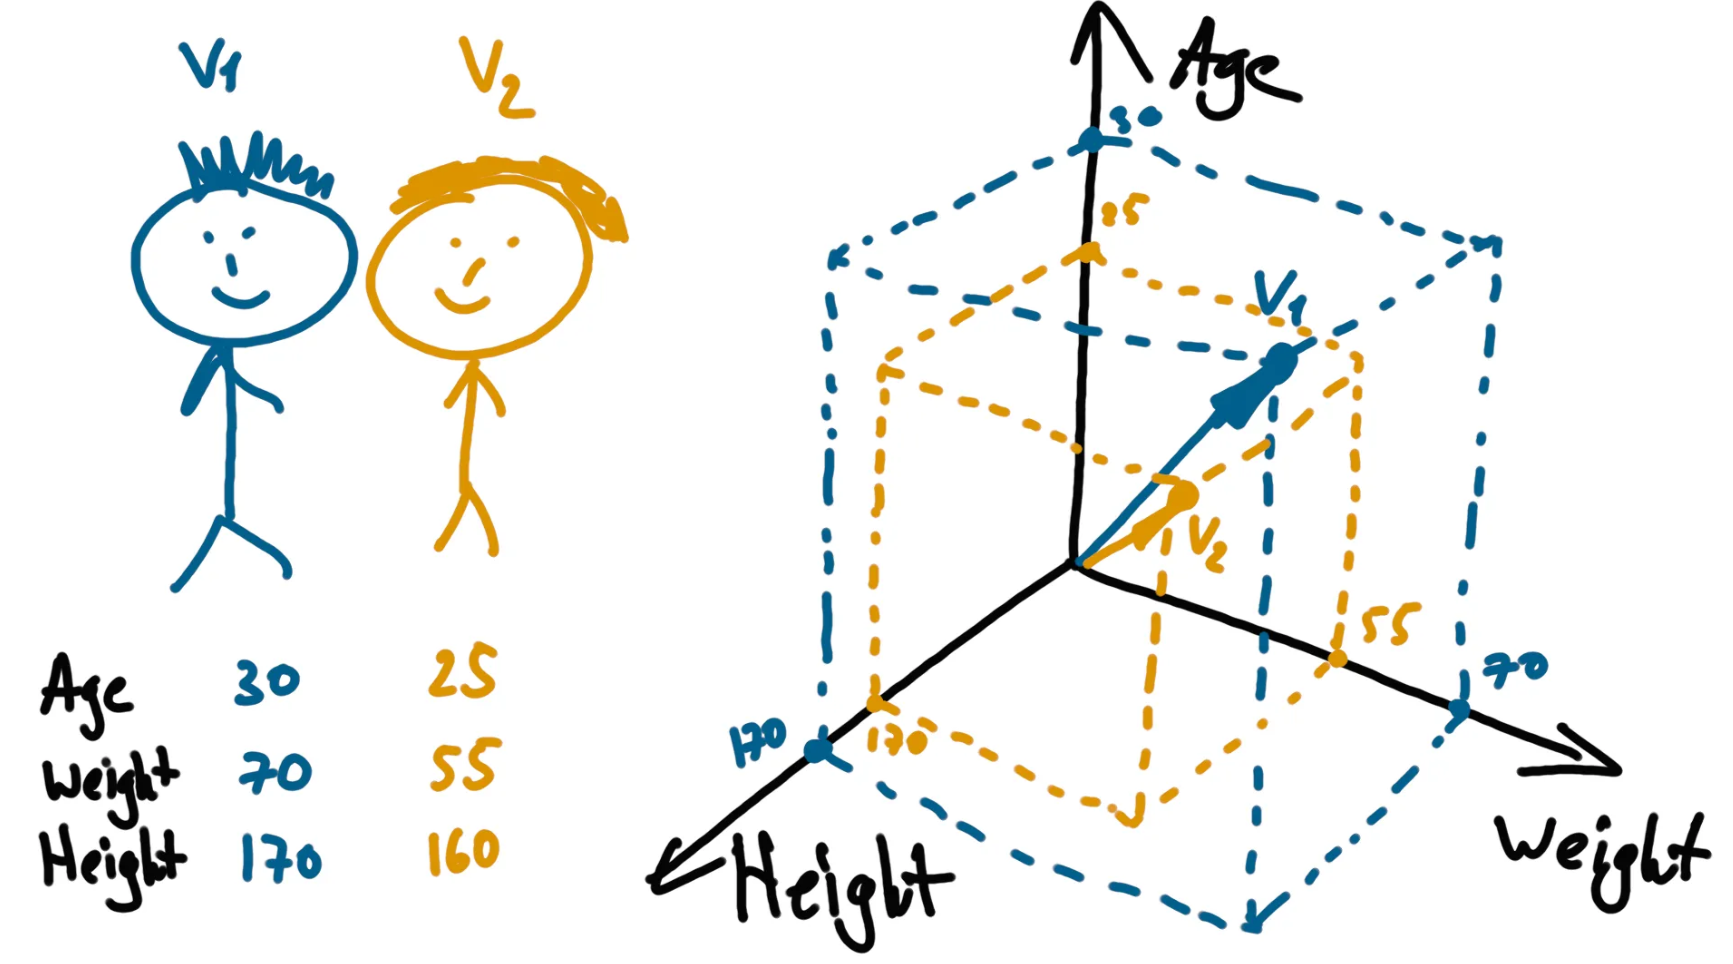 V1 V2
Age 30 25
Weight 70 55
Height 170 160
Age
30
25
V1
V2
55
70
170 170
Height
Weight